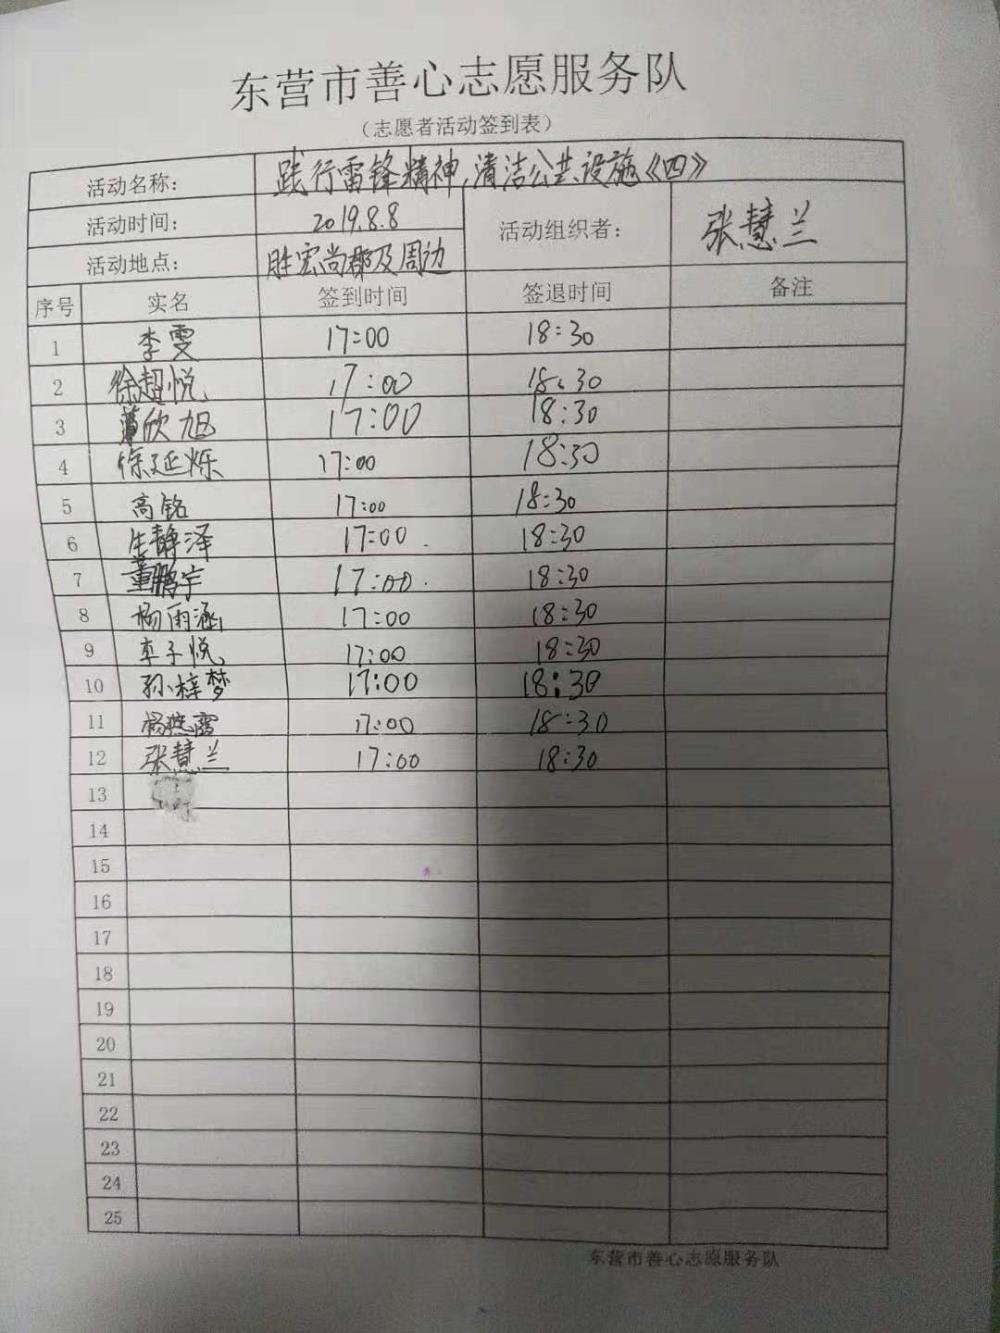 东营市善心志愿服务队
（志愿者活动签到表）
活动名称： 践行雷锋精神,清洁公共设施《四》
活动时间： 2019.8.8 活动组织者： 张慧兰
活动地点： 胜宏尚郡及周边
序号 实名 签到时间 签退时间 备注
1 李雯 17:00 18:30
2 徐超悦 17:00 18:30
3 董欣旭 17:00 18:30
4 徐延烁 17:00 18:30
5 高铭 17:00 18:30
6 生静泽 17:00 18:30
7 董鹏宇 17:00 18:30
8 杨雨涵 17:00 18:30
9 李子悦 17:00 18:30
10 孙梓梦 17:00 18:30
11 17:00 18:30
12 张慧兰 17:00 18:30
13
14
15
16
17
18
19
20
21
22
23
24
25
东营市善心志愿服务队